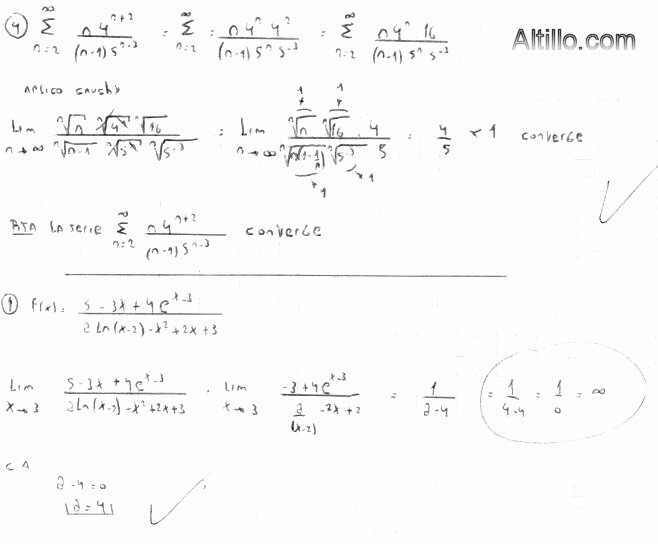 Altillo.com
④ ∑_{n=2}^{∞} n4^{n+2} / (n-1) 5^{n-3} = ∑_{n=2}^{∞} = n4^n 4^2 / (n-1) 5^n 5^{-3} = ∑_{n=2}^{∞} n4^n 16 / (n-1) 5^n 5^{-3}
Aplico Cauchy
Lim_{n→∞} ⁿ√n ⁿ√4^n ⁿ√16 / ⁿ√n-1 ⁿ√5^n ⁿ√5^{-3} = Lim_{n→∞} ⁿ√n ⁿ√16 · 4 / ⁿ√n(1-1/n) ⁿ√5^{-3} 5 = 4/5 < 1 converge
RTA La serie ∑_{n=2}^{∞} n4^{n+2} / (n-1) 5^{n-3} converge
① f(x) = 5 - 3x + 4e^{x-3} / a Ln(x-2) - x^2 + 2x + 3
Lim_{x→3} 5 - 3x + 4e^{x-3} / a Ln(x-2) - x^2 + 2x + 3 = Lim_{x→3} -3 + 4e^{x-3} / a/(x-2) - 2x + 2 = 1 / a - 4 = 1 / 4-4 = 1/0 = ∞
a - 4 = 0
a = 4